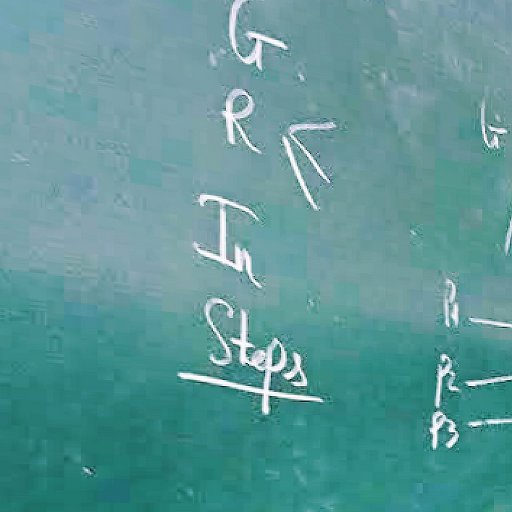 G
R
In
Steps
G
P1
P2
P3